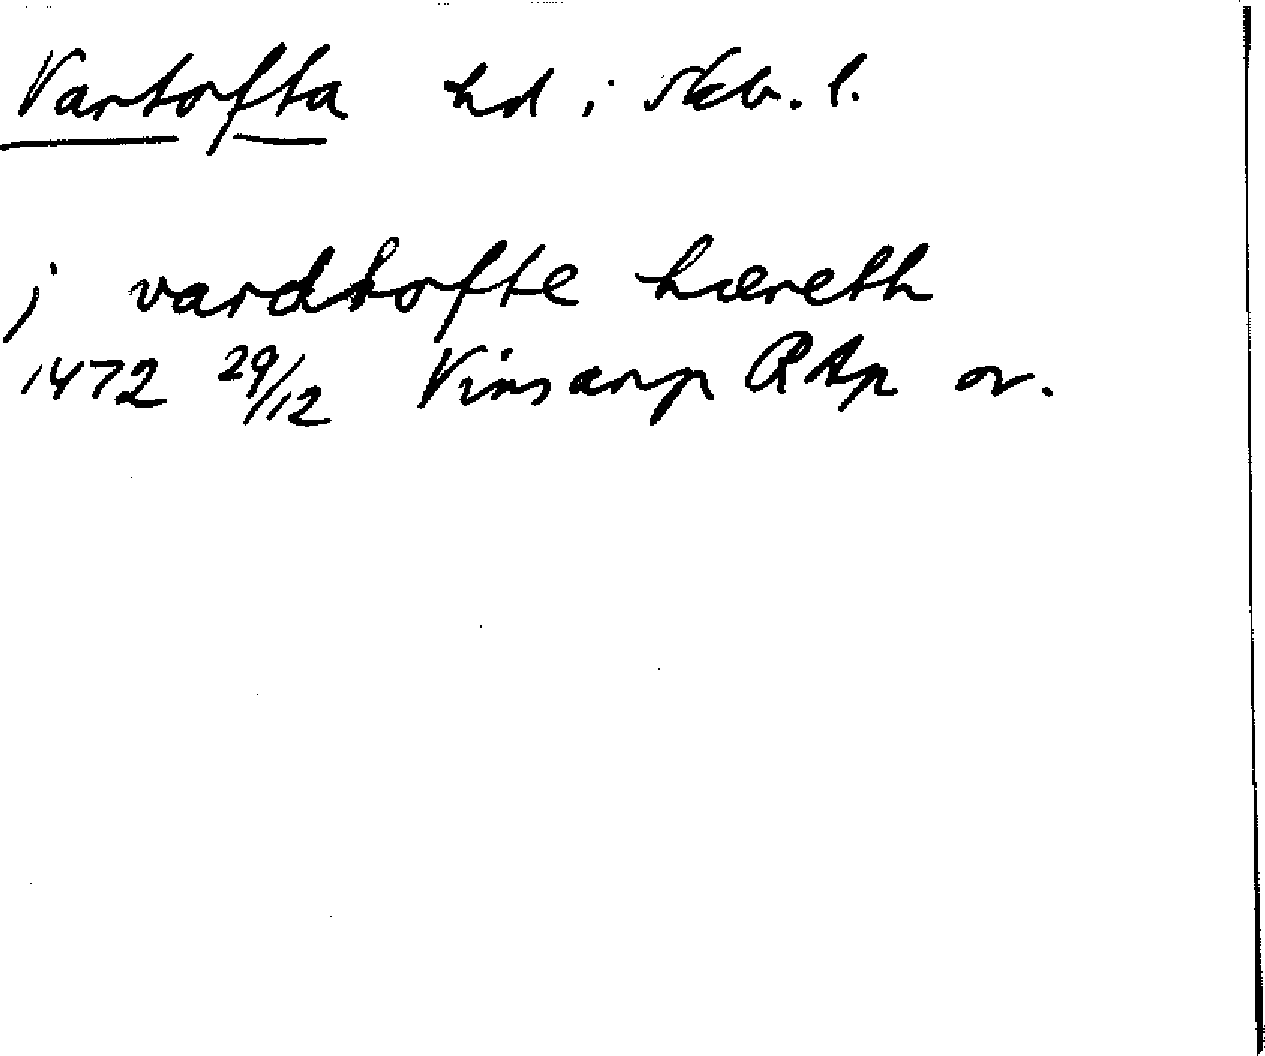 Vartofta hd i Skb. l.
j vardtofte hæreth
1472 29/12 Vinsarp RAp or.